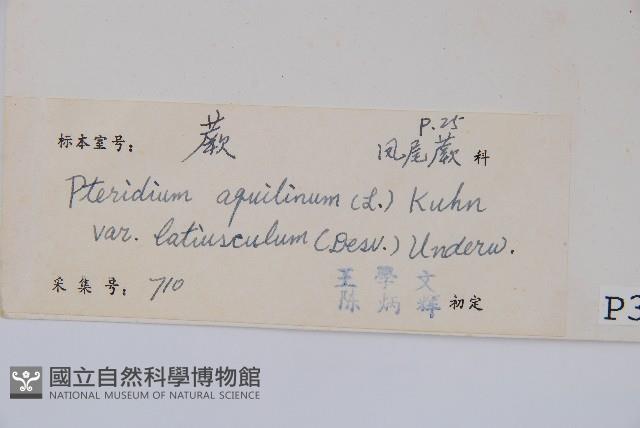 P.25
标本室号： 蕨 凤尾蕨 科
Pteridium aquilinum (L.) Kuhn
var. latiusculum (Desv.) Underw.
王學文
采集号： 710 陈炳辉 初定
P3
國立自然科學博物館
NATIONAL MUSEUM OF NATURAL SCIENCE